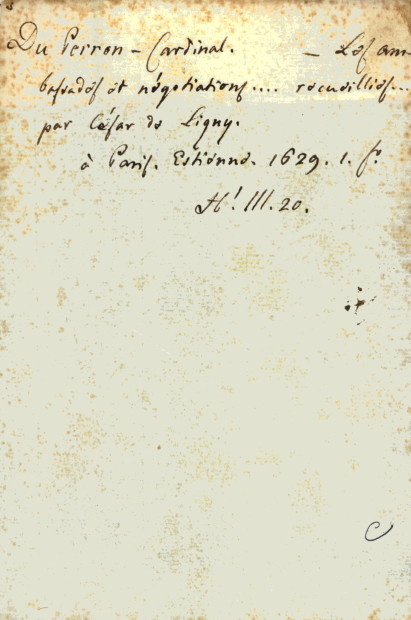 Du Perron - Cardinal. - Les am-
bassades et négotiations.... recueillies...
par César de Ligny.
à Paris. Estienne. 1629. 1. f°.
H! III. 20.